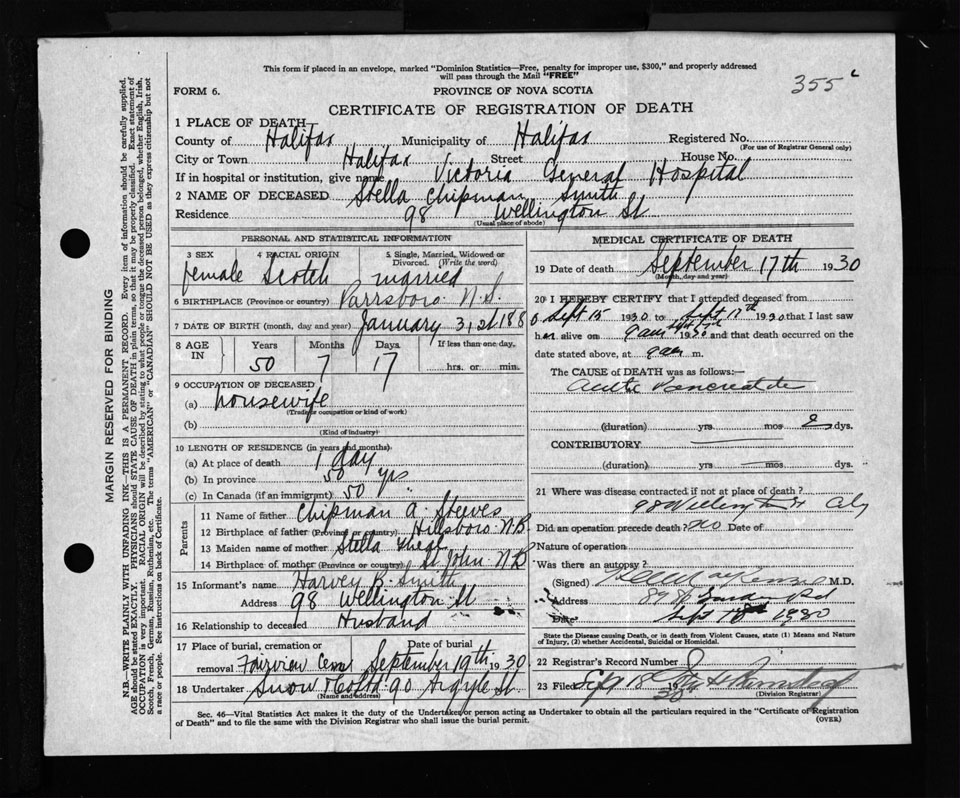 This form if placed in an envelope, marked "Dominion Statistics—Free, penalty for improper use, $300," and properly addressed
will pass through the Mail "FREE"
355
FORM 6.
PROVINCE OF NOVA SCOTIA
CERTIFICATE OF REGISTRATION OF DEATH
1 PLACE OF DEATH
County of Halifax Municipality of Halifax Registered No.
(For use of Registrar General only)
City or Town Halifax Street House No.
If in hospital or institution, give name Victoria General Hospital
2 NAME OF DECEASED Stella Chipman Smith
Residence 98 Wellington St
(Usual place of abode)
PERSONAL AND STATISTICAL INFORMATION
3 SEX 4 RACIAL ORIGIN 5 Single, Married, Widowed or
Divorced. (Write the word)
female Scotch married
6 BIRTHPLACE (Province or country) Parrsboro N.S.
7 DATE OF BIRTH (month, day and year) January 31st 188
8 AGE IN Years Months Days If less than one day.
50 7 17 hrs. or min.
9 OCCUPATION OF DECEASED
(a) housewife
(Trade or occupation or kind of work)
(b)
(Kind of industry)
10 LENGTH OF RESIDENCE (in years and months)
(a) At place of death 1 day
(b) In province 50 yrs
(c) In Canada (if an immigrant) 50
Parents
11 Name of father Chipman A. Steeves
12 Birthplace of father (Province or country) Hillsboro N.B.
13 Maiden name of mother Stella
14 Birthplace of mother (Province or country) St. John N.B
15 Informant's name Harvey B. Smith
Address 98 Wellington St
16 Relationship to deceased Husband
17 Place of burial, cremation or Date of burial
removal Fairview Cem September 19th 1930
18 Undertaker Snow & Co Ltd 90 Argyle St
(Name and address)
MEDICAL CERTIFICATE OF DEATH
19 Date of death September 17th 1930
(Month, day and year)
20 I HEREBY CERTIFY that I attended deceased from
Sept 15 1930 to Sept 17th 1930 that I last saw
her alive on 9 am Sept 17th 1930 and that death occurred on the
date stated above, at 9 am m.
The CAUSE of DEATH was as follows:—
Acute Pancreatitis
(duration) yrs mos 2 dys.
CONTRIBUTORY
(duration) yrs mos dys.
21 Where was disease contracted if not at place of death?
98 Wellington St City
Did an operation precede death? no Date of
Nature of operation
Was there an autopsy?
(Signed) M.D.
Address
Date Sept 18 1930
State the Disease causing Death, or in death from Violent Causes, state (1) Means and Nature
of Injury, (2) whether Accidental, Suicidal or Homicidal.
22 Registrar's Record Number
23 Filed Sept 18 30
(Division Registrar)
Sec. 46—Vital Statistics Act makes it the duty of the Undertaker or person acting as Undertaker to obtain all the particulars required in the "Certificate of Registration
of Death" and to file the same with the Division Registrar who shall issue the burial permit. (OVER)
MARGIN RESERVED FOR BINDING
N.B.—WRITE PLAINLY WITH UNFADING INK—THIS IS A PERMANENT RECORD. Every item of information should be carefully supplied.
AGE should be stated EXACTLY. PHYSICIANS should STATE CAUSE OF DEATH in plain terms, so that it may be properly classified. Exact statement of
OCCUPATION is very important. RACIAL ORIGIN will be described by stating to what people or tongue the deceased person belonged, whether English, Irish,
Scotch, French, German, Russian, Ruthenian, etc. The terms "AMERICAN" or "CANADIAN" SHOULD NOT BE USED as they express citizenship but not
a race or people. See instructions on back of Certificate.